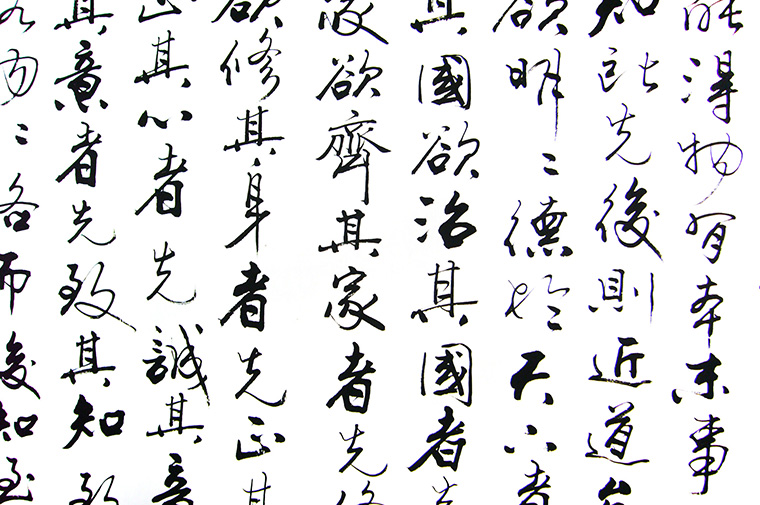 能得物有本末事
知所先後則近道矣
欲明〻德於天下者
其國欲治其國者先
家欲齊其家者先修
欲修其身者先正其
正其心者先誠其意
其意者先致其知致
物〻格而後知至